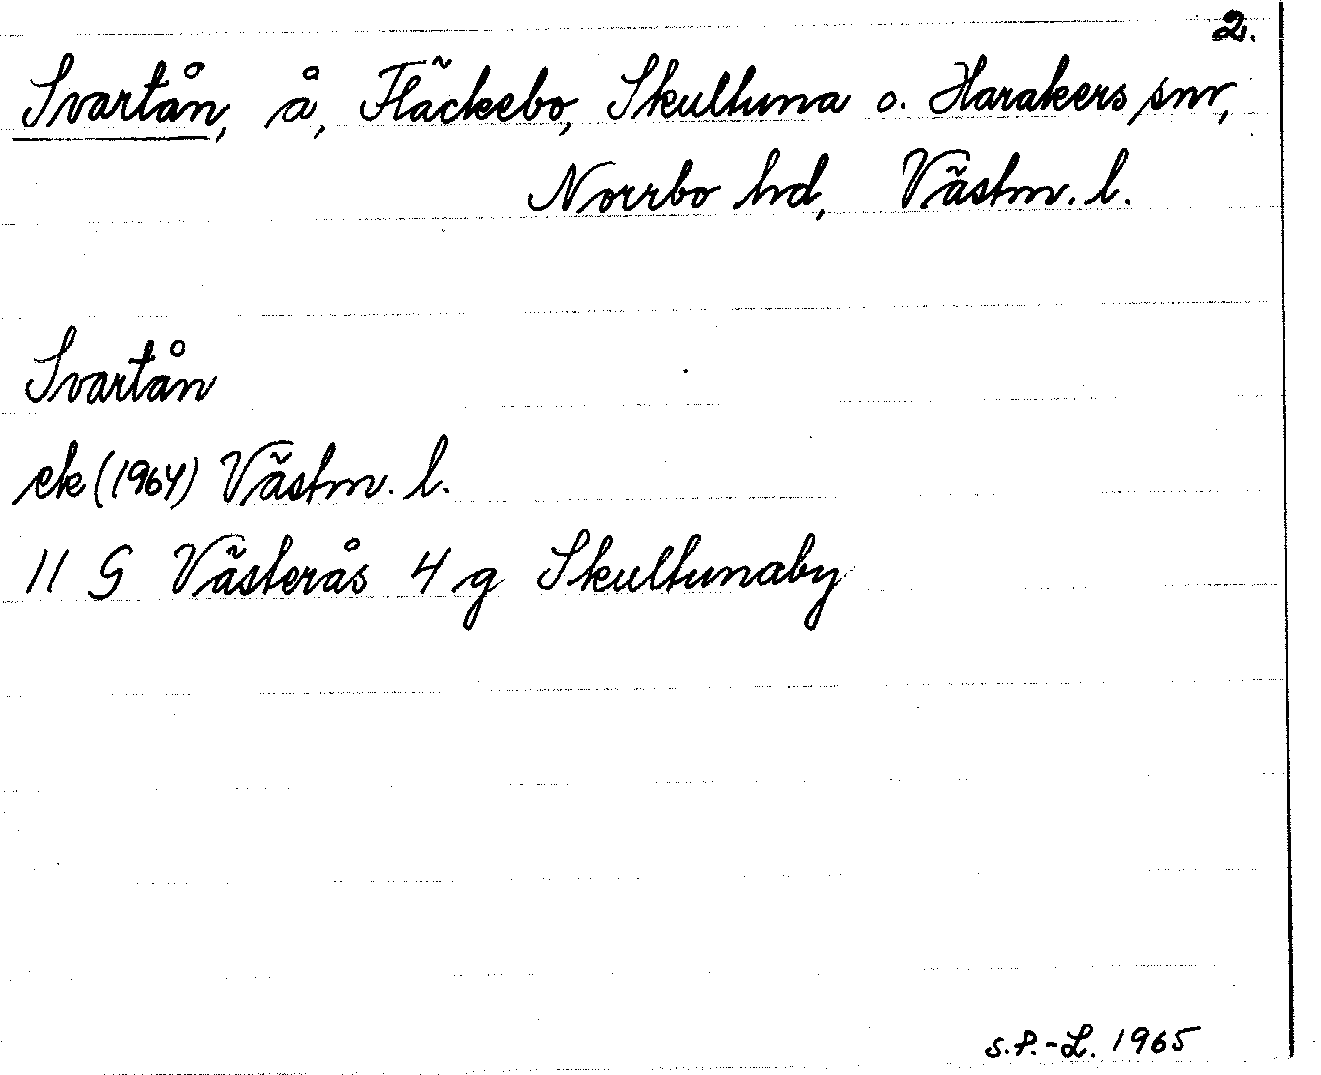 2.
Svartån, å, Fläckebo, Skultuna o. Harakers snr,
Norrbo hd, Västm. l.
Svartån
ek (1964) Västm. l.
11 G Västerås 4 g Skultunaby
S.P.-L. 1965